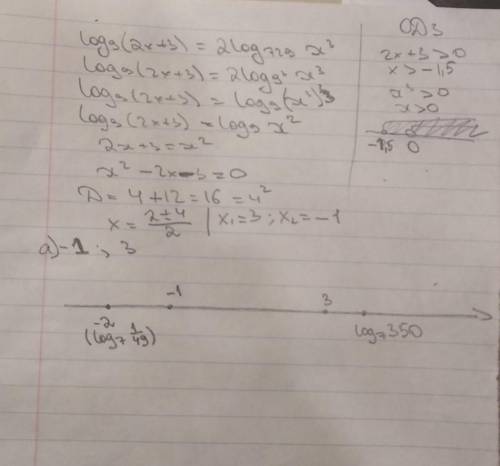 log₉(2x+3) = 2log₇₂₉ x³
log₉(2x+3) = 2log₉³ x³
log₉(2x+3) = log₉(x²)³
log₉(2x+3) = log₉ x²
2x+3 = x²
x² - 2x - 3 = 0
D = 4 + 12 = 16 = 4²
x = (2±4)/2 | x₁=3 ; x₂ = -1
а) -1 ; 3
ОДЗ
2x+3 > 0
x > -1,5
x³ > 0
x > 0
-1,5 0
-1 3
-2 log₇350
(log₇ 1/49)